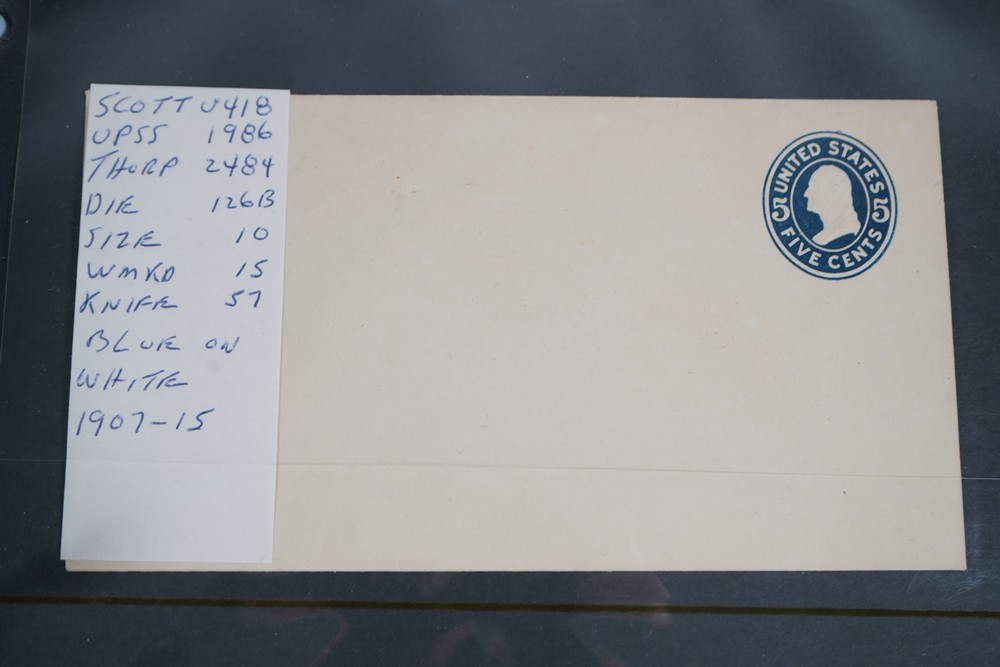 SCOTT U418
UPSS 1986
THORP 2484
DIE 126B
SIZE 10
WMKD 15
KNIFE 57
BLUE ON
WHITE
1907-15
UNITED STATES
5 5
FIVE CENTS